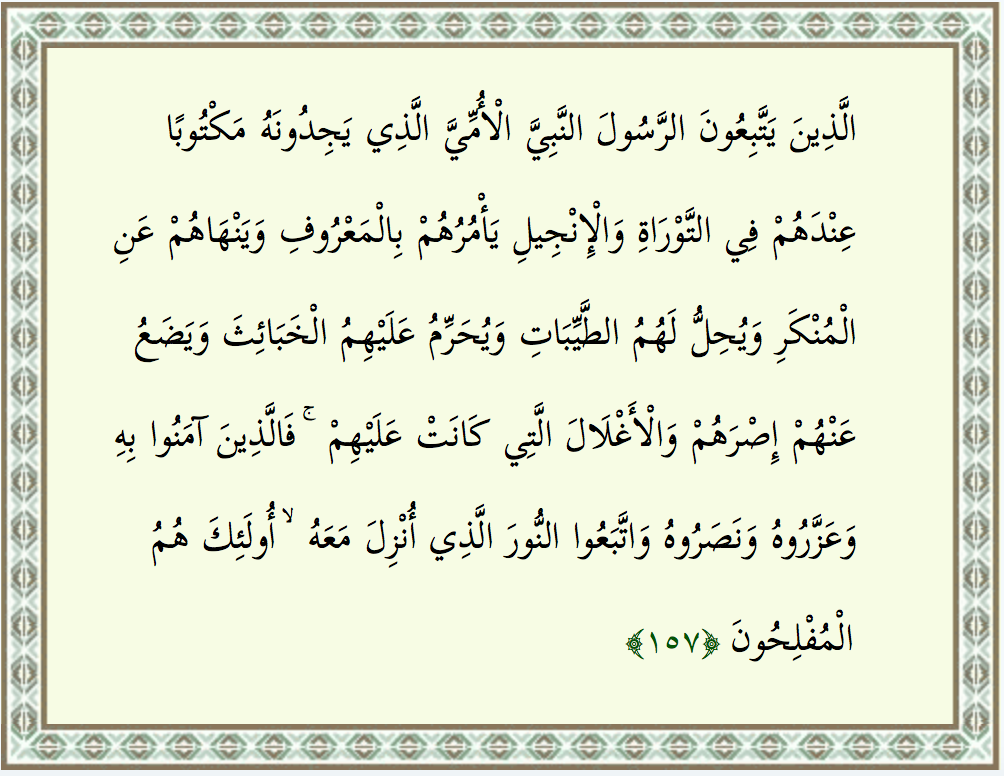 الَّذِينَ يَتَّبِعُونَ الرَّسُولَ النَّبِيَّ الْأُمِّيَّ الَّذِي يَجِدُونَهُ مَكْتُوبًا
عِنْدَهُمْ فِي التَّوْرَاةِ وَالْإِنْجِيلِ يَأْمُرُهُمْ بِالْمَعْرُوفِ وَيَنْهَاهُمْ عَنِ
الْمُنْكَرِ وَيُحِلُّ لَهُمُ الطَّيِّبَاتِ وَيُحَرِّمُ عَلَيْهِمُ الْخَبَائِثَ وَيَضَعُ
عَنْهُمْ إِصْرَهُمْ وَالْأَغْلَالَ الَّتِي كَانَتْ عَلَيْهِمْ ۚ فَالَّذِينَ آمَنُوا بِهِ
وَعَزَّرُوهُ وَنَصَرُوهُ وَاتَّبَعُوا النُّورَ الَّذِي أُنْزِلَ مَعَهُ ۙ أُولَئِكَ هُمُ
الْمُفْلِحُونَ ﴿١٥٧﴾